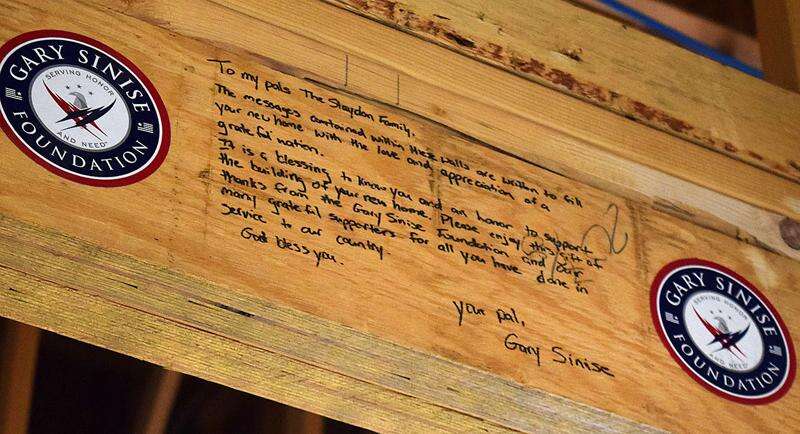 GARY SINISE
SERVING HONOR
AND NEED
FOUNDATION
To my pals The Slaydon Family,
The messages contained within these walls are written to fill
your new home with the love and appreciation of a
grateful nation.
It is a blessing to know you and an honor to support
the building of your new home. Please enjoy this gift of
thanks from the Gary Sinise Foundation and our
many grateful supporters for all you have done in
service to our country.
God bless you.
your pal,
Gary Sinise
GARY SINISE
SERVING HONOR
AND NEED
FOUNDATION